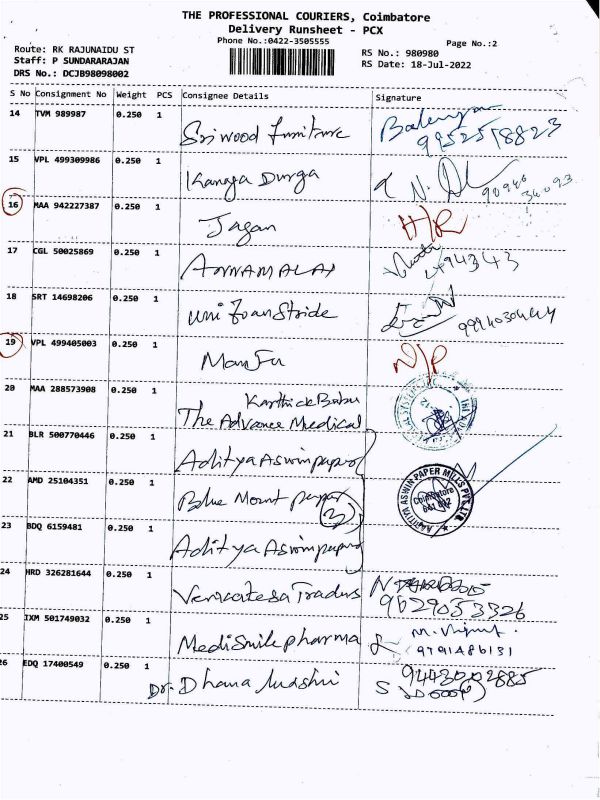 THE PROFESSIONAL COURIERS, Coimbatore
Delivery Runsheet - PCX
Phone No.:0422-3505555
Page No.:2
Route: RK RAJUNAIDU ST
Staff: P SUNDARARAJAN
DRS No.: DCJB98098002
RS No.: 980980
RS Date: 18-Jul-2022
S No Consignment No Weight PCS Consignee Details Signature
14 TVM 989987 0.250 1 Sriwood furniture
9952578823
15 VPL 499309986 0.250 1 Kanaga Durga
16 MAA 942227387 0.250 1 Jagan
17 CGL 50025869 0.250 1 ANNAMALAI
18 SRT 14698206 0.250 1 Uni foam Stride
19 VPL 499405003 0.250 1
N/P
20 MAA 288573908 0.250 1 Karthick Babu
The Advance Medical
21 BLR 500770446 0.250 1 Aditya Aswin paper
22 AMD 25104351 0.250 1 Blue Mount paper
3
AADITYA ASWIN PAPER MILLS PVT. LTD.
Coimbatore
23 BDQ 6159481 0.250 1 Aditya Aswin paper
24 HRD 326281644 0.250 1 Venkatesa Traders
9629053326
25 IXM 501749032 0.250 1 MediSmile pharma
9791486131
26 EDQ 17400549 0.250 1 Dr. Dhana
9443002885